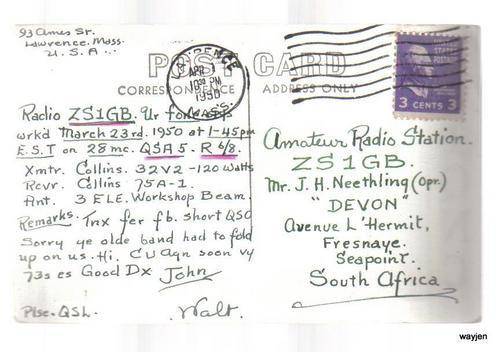 93 Ames St.
Lawrence, Mass.
U.S.A.
POST CARD
CORRESPONDENCE
ADDRESS ONLY
LAWRENCE
APR 1
1950
MASS.
3 CENTS 3
Radio ZS1GB. Ur fone sigs
wrk'd March 23rd. 1950 at 1-45pm
E.S.T on 28 mc. QSA 5. R 6/8.
Xmtr. Collins. 32V2 -120 Watts
Rcvr. Collins 75A-1.
Ant. 3 ELE. Workshop Beam.
Remarks. Tnx fer fb. Short QSO
Sorry ye olde band had to fold
up on us. Hi. C U Agn soon vy
73s es Good Dx John
Plse. QSL. Walt.
Amateur Radio Station.
ZS1GB.
Mr. J. H. Neethling (Opr.)
"DEVON"
Avenue L'Hermit,
Fresnaye.
Seapoint.
South Africa
wayjen